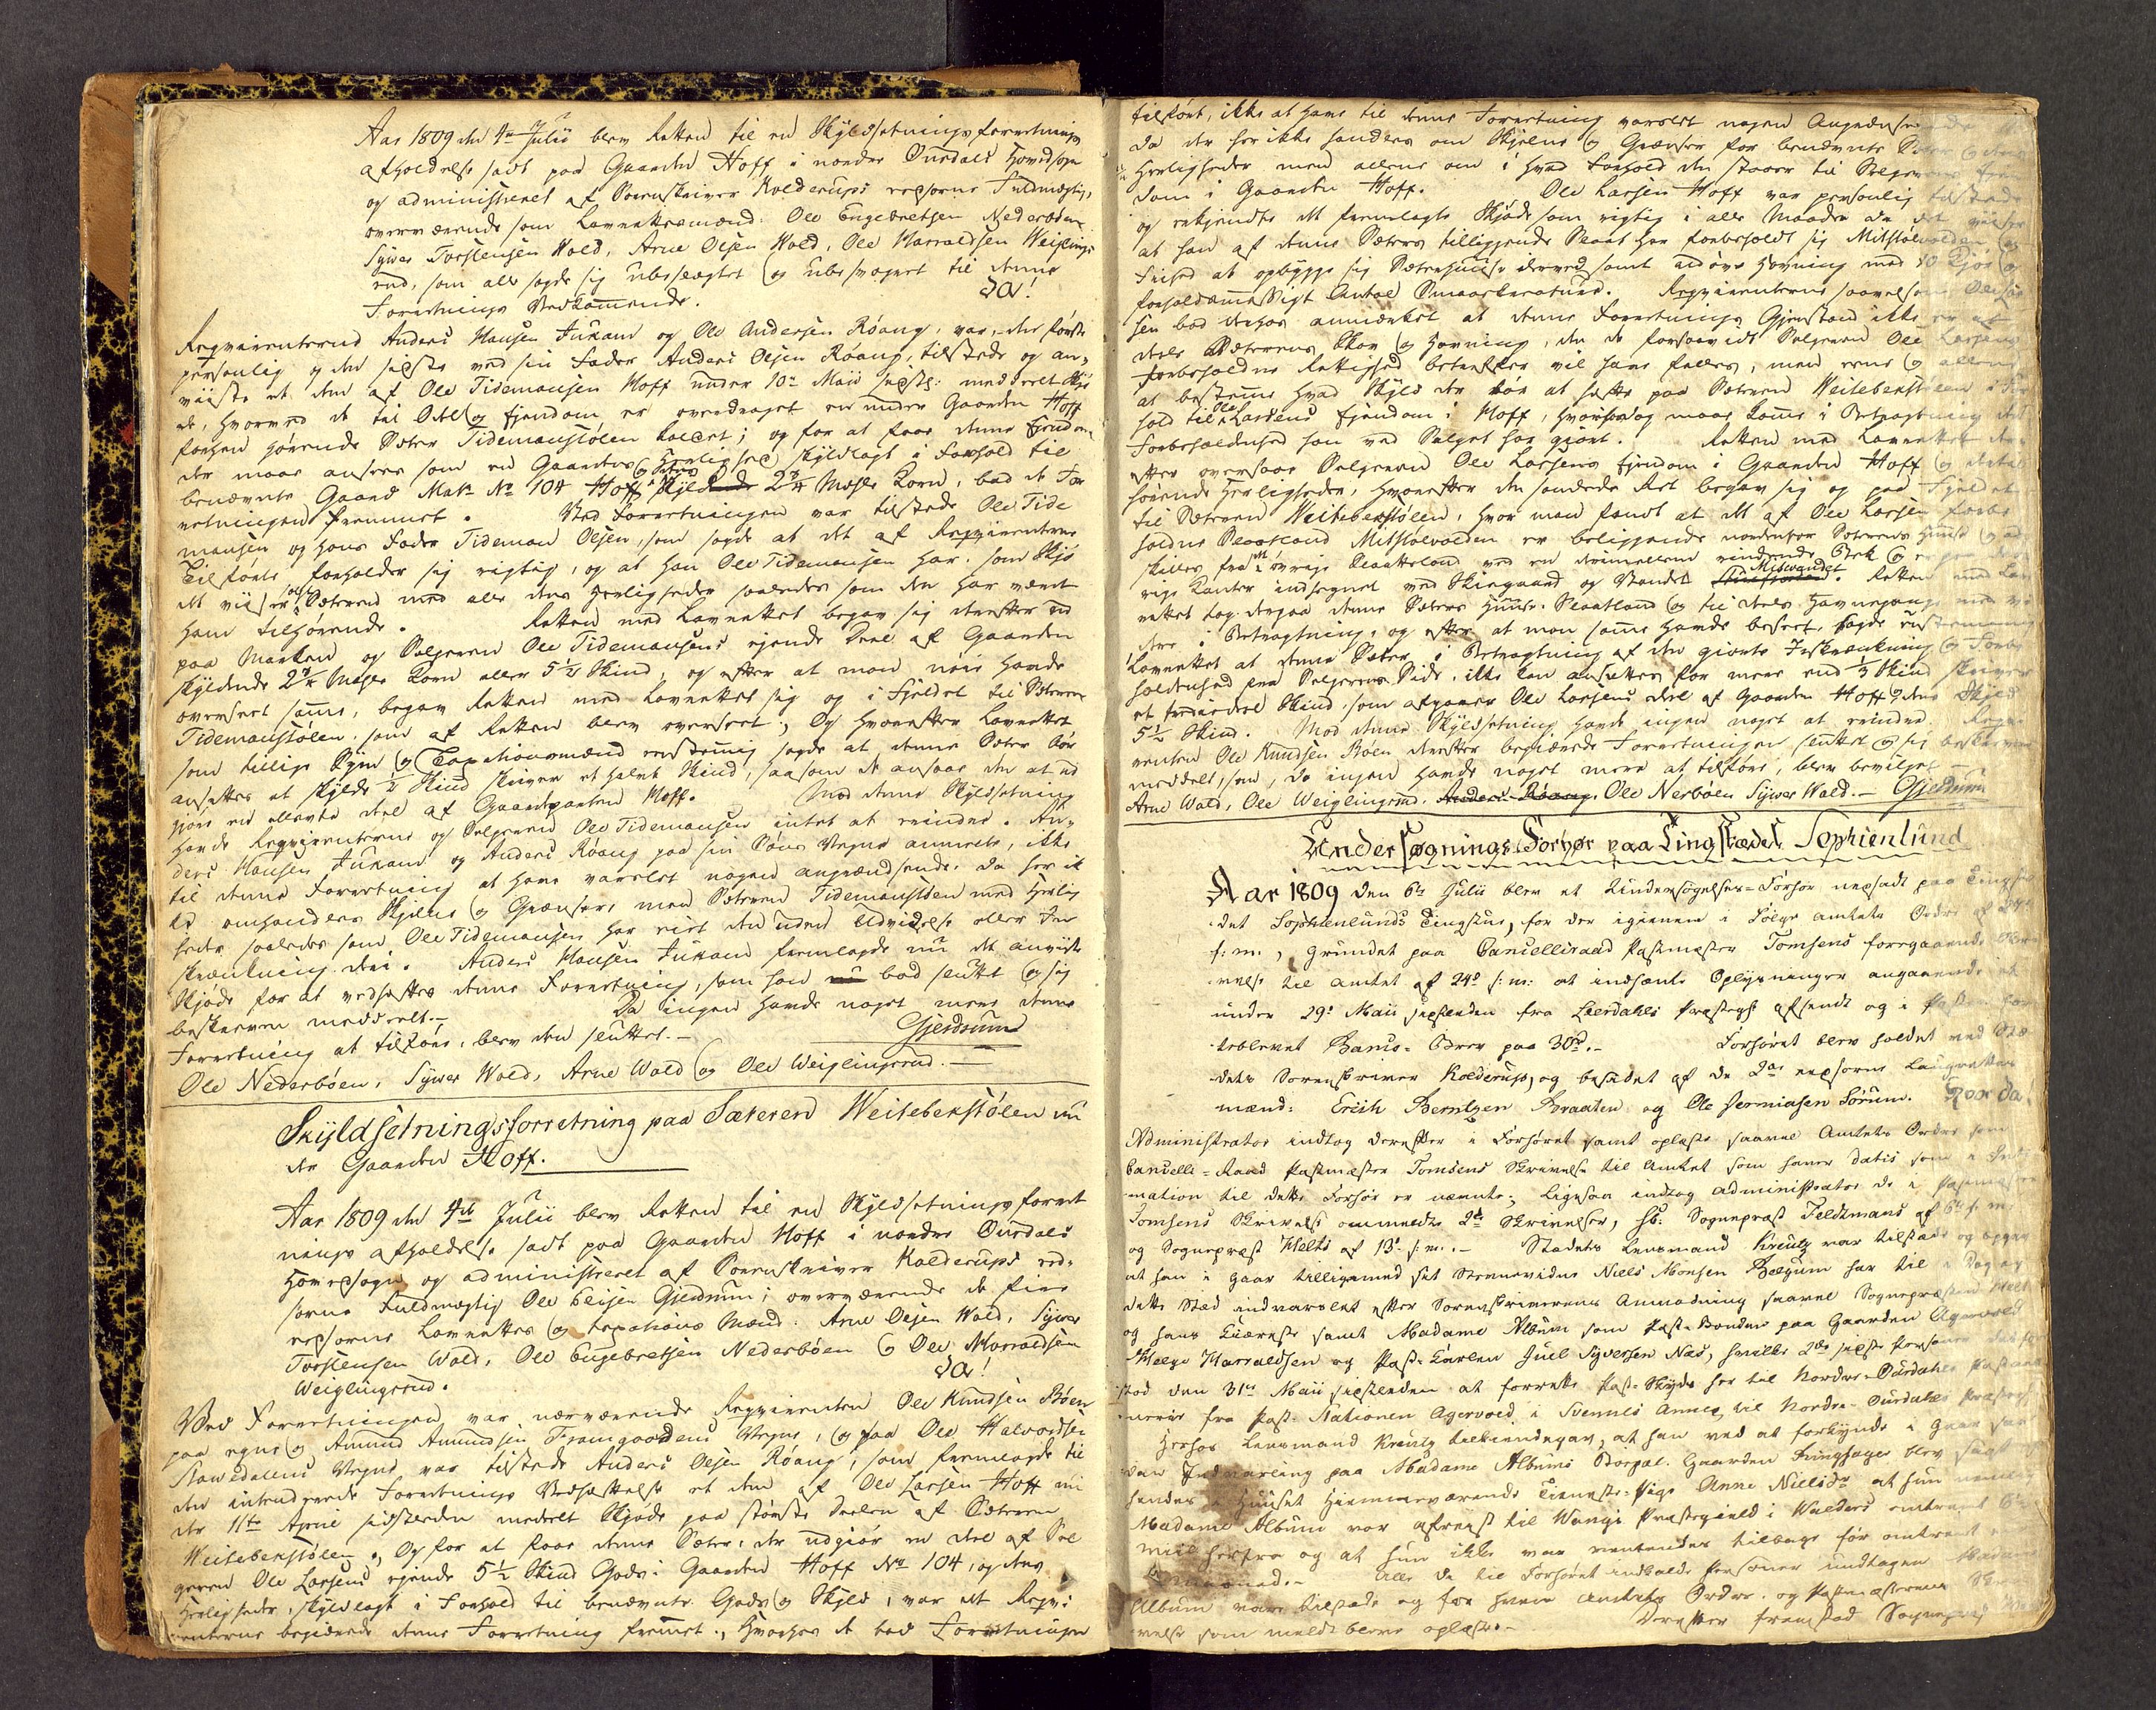 Aar 1809 den 4de Julii blev Retten til en Skyldsetningsforretnings
afholdelse sadt paa Gaarden Hoff i nordre Ourdals Hovedsogn
og administreret af Sorenskriver Kolderups eedsorne Fuldmægtig,
overværende som Laurettesmænd: Ole Engebretsen Nederbøen
Syver Torstensen Wold, Arne Olsen Wold, Ole Harraldsen Weiglings
rud, som alle sagde sig ubeslægtet og ubesvogret til denne
Forretnings Vedkommende. Da!
Reqvirenterne Anders Hansen Jukam og Ole Andersen Róang, var, den første
personlig og den sidste ved sin Fader Anders Olsen Róang, tilstede og an-
viiste et dem af Ole Tidemansen Hoff under 10de Maii sidstl: meddeelt Skjø
de, hvorved de til Odel og Ejendom er overdraget en under Gaarden Hoff
forhen hørende Sæter Tidemanstølen kaldet; og for at faae denne Ejendom
der maae ansees som en Gaardens Herlighed skyldlagt i Forhold til
benævnte Gaard Matr. No 104 Hoff dens Skyld 2¾ Mæle Korn, bad de For
retningen fremmet. Ved Forretningen var tilstede Ole Tide
mansen og hans Fader Tideman Olsen, som sagde at det af Reqvirenterne
Tilførte forholder sig rigtig, og at han Ole Tidemansen har, som Skjø
det viiser solgt Sæteren med alle dens Herligheder saaledes som den har været
ham tilhørende. Retten med Laurettet begav sig derefter ud
paa Marken og Selgeren Ole Tidemansens ejende Deel af Gaarden
skyldende 2¾ Mæle Korn eller 5½ Skind, og efter at man nøie havde
overseet samme, begav Retten med Laurettet sig op i Fjeldet til Sæteren
Tidemanstølen, som af Retten blev overseet; Og hvorefter Laurettet
som tillige Syns og Taxationsmænd eenstemmig sagde at denne Sæter bør
ansettes at skylde ½ Skind skriver et halvt Skind, saasom de ansaae den at ud
giøre en ellevte deel af Gaardparten Hoff. Mod denne Skyldsetning
havde Reqvirenterne og Selgeren Ole Tidemansen intet at erindre. An-
ders Hansen Jukam og Anders Róang paa sin Søns Vegne anmeldte, ikke
til denne Forretning at have varslet nogen angrændsende, da her ik
ke omhandles Skjelne og Grændser, men Sæteren Tidemanstølen med Herlig
heder saaledes som Ole Tidemansen har eiet den uden Udvidelse eller Ind
skrænkning deri. Anders Hansen Jukam fremlagde nu det anviiste
Skjøde for at vedhæftes denne Forretning, som han bad sluttet og sig
beskreven meddeelt. – Da ingen havde noget mere denne
Forretning at tilføre, blev den sluttet. – Gjerdrum
Ole Nederbøen, Syver Wold, Arne Wold og Ole Weiglingsrud. –
Skyldsetningsforretning paa Sæteren Weitebekstølen un
der Gaarden Hoff.
Aar 1809 den 4de Julii blev Retten til en Skyldsetningsforret
nings afholdelse sadt paa Gaarden Hoff i nordre Ourdals
Hovedsogn og administreret af Sorenskriver Kolderups eed-
sorne Fuldmægtig Ole Gjerdrum; overværende de fire
eedsorne Laurettes og Taxations Mænd: Arne Olsen Wold, Syver
Torstensen Wold, Ole Engebretsen Nederbøen og Ole Harraldsen
Weiglingsrud. Da!
Ved Forretningen var nærværende Reqvirenten Ole Knudsen Bøen
paa egne og Amund Amundsen Framgaardens Vegne, og paa Ole Halvordsen
Slavedalens Vegne var tilstede Anders Olsen Róang, som fremlagde til
den intenderede Forretnings Vedhæftelse et dem af Ole Larsen Hoff un
der 11te April sidstleden meddeelt Skjøde paa største Deelen af Sæteren
Weitebekstølen; Og for at faae denne Sæter, der udgiør en deel af Sæl
geren Ole Larsens ejende 5½ Skind Gods i Gaarden Hoff No 104, og dens
Herligheder, skyldlagt i Forhold til benævnte Gods og Skyld, var det Reqvi
renterne begierede denne Forretning fremmet; Hvorhos de bad Forretningen
tilført, ikke at have til denne Forretning varslet nogen Angrændsende
da der her ikke handles om Skjelne og Grænser for benævnte Sæter og dens
Herligheder men allene om i hvad Forhold den staaer til Selgerens Ejen
dom i Gaarden Hoff. Ole Larsen Hoff var personlig tilstede
og erkjendte det fremlagte Skjøde som rigtig i alle Maader da det viiser
at han af denne Sæters tilliggende Slaat har forbeholdt sig Mitstølvolden, og
Frihed at opbygge sig Sæterhuuse derved samt at øve Havning med 10 Kjør og
forholdsmessigt Antal Smaaekreature. Reqvirenterne saavelsom Ole Lar
sen bad derhos anmærket at denne Forretnings Gjenstand ikke er at
dele Sæterens Skov og Havning, der de forsaavidt Selgeren Ole Larsens
Forbeholdne Rettighed betræffer vil have fælles, men eene og allene
at bestemme hvad Skyld der bør at hefte paa Sæteren Weitebekstølen i For
hold til Ole Larsens Ejendom i Hoff, hvorhos og maae komme i Betragtning det
Forbeholdenhed han ved Salget har giort. Retten med Laurettet der
efter oversaae Selgeren Ole Larsens Ejendom i Gaarden Hoff og dertil
hørende Herligheder, hvorefter den samlede Ret begav sig op paa Fjeldet
til Sæteren Weitebekstølen, hvor man fandt at det af Ole Larsen forbe
holdne Slaatland Mitstølvolden er beliggende nordenfor Sæterens Huuse og ad
skilles fra det øvrige Slaatteland ved en derimellem rindende Bæk og er paa de øv
rige Kanter indhegnet ved Skiegaard og Vandet Mitvandet. Retten med Lau
rettet tog derpaa denne Sæters Huuse, Slaatland og til deels Havnegange med vi
dere i Betragtning, og efter at man samme havde beseet, sagde eenstemmig
Laurettet at denne Sæter i Betragtning af den giorte Indskrænkning og Forbe
holdenhed fra Selgerens Side, ikke kan ansettes for mere end ⅓ Skind skriver
et trediedeel Skind, som afgaaer Ole Larsens deel af Gaarden Hoff dens Skyld
5½ Skind. Mod denne Skyldsetning havde ingen noget at erindre. Reqvi
renten Ole Knudsen Bøen derefter begierede Forretningen sluttet og sig beskreven
meddeelt, som, da ingen havde noget mere at tilføre, blev bevilget –
Arne Wold, Ole Weiglingsrud. Anders Róang, Ole Nerbøen Syver Wold. – Gjerdrum
Undersøgnings Forhør paa Tingstædet Sophienlund
Aar 1809 den 6te Julii blev et Undersøgelses-Forhør nedsadt paa Tingste
det Sophienlunds Tingstue, for der igiennem i Følge Amtets Ordre af 27de
f: m:, grundet paa Cancelliraad Postmester Tomsens foregaaende Skri
velse til Amtet af 24de s: m: at indhente Oplysninger angaaende et
under 29de Maii sidstleden fra Leerdahls Præstegl. afsendt og i Posten
teblevet Banco-Brev paa 30 rd. – Forhøret blev holdet ved Stæ
dets Sorenskriver Kolderup, og besidet af de 2de eedsorne Laugrettes
mænd: Erich Berntzen Braaten og Ole Jermiasen Sørum. Hvor da
Administrator indtog derefter i Forhøret samt oplæste saavel Amtets Ordre som
Cancelli-Raad Postmester Tomsens Skrivelse til Amtet som hver datis som i Inti
mation til dette Forhør er nævnte; Ligesaa indtog Administrator de i Postmester
Tomsens Skrivelse ommeldte 2de Skrivelser, sc: Sognepræst Feldtmans af 6te f: m:
og Sognepræst Heltz af 13de f: m: – Stædets Lensmand Kreutz var tilstæde og opgav
at han i Gaar tilligemed sit Stevnevidne Niels Monsen Belgum har til i Dag og
dette Sted indvarslet efter Sorenskriverens Anmodning saavel Sognepræsten Helt
og hans Kiæreste samt Madame Album som Post-Bonden paa Gaarden Agervold
Helge Harraldsen og Post-Karlen Juel Syversen Næs, hvilke 2de sidste Personer
stod den 31te Maii sidstleden at forrette Post-Skyds her til Nordre-Ourdahls
fra Post-Stationen Agervold i Svennes Annex til Nordre-Ourdahls Præstegl
Herhos Lensmand Kreutz tilkiendegav, at han ved at forkynde i Gaar
den Indvarsling paa Madame Albums Bopæl Gaarden Ringhager blev sagt
hendes i Huuset hiemmeværende Tieneste-Pige Anne Nielsdr at hun nemlig
Madame Album var afreist til Wangs Præstegield i Walders omtrent 6
Miil herfra og at hun ikke var ventendes tilbage før omtrent
Maaned. – Alle de til Forhøret indkaldte Personer undtagen Madame
Album vare tilstæde og for hvem Amtets Ordre og Postmesterens Skri
velse som meldt bleve oplæste. – Derefter fremstod Sognepræst